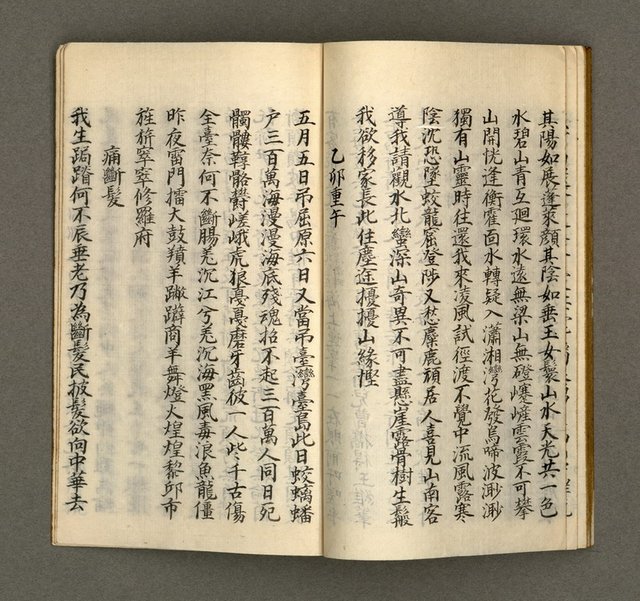 其陽如展蓬萊顏其陰如垂玉女鬟山水天光共一色
水碧山青互迴環水遠無梁山無磴巉巗雲霞不可攀
山開恍逢衡霍面水轉疑入瀟湘灣花發鳥啼波渺渺
獨有山靈時往還我來凌風試徑渡不覺中流風露寒
陰沈恐墜蛟龍窟登陟又愁麋鹿頑居人喜見山南客
導我請觀水北蠻深山奇異不可盡懸崖露骨樹生鬚
我欲移家長此住塵途擾擾山緣慳
乙卯重午
五月五日吊屈原六日又當吊臺灣臺島此日蛟螭蟠
戶三百萬海漫漫海底殘魂招不起三百萬人同日死
髑髏鞟骼欝嵯峨虎狼戛戛磨牙齒彼一人些千古傷
全臺奈何不斷腸兎沉江兮兎沉海黑風毒浪魚龍僵
昨夜雷門擂大鼓羵羊蹴躃商羊舞燈火煌煌黎邱市
旌旂窣窣修羅府
痛斷髮
我生跼蹐何不辰垂老乃為斷髮民披髮欲向中華去